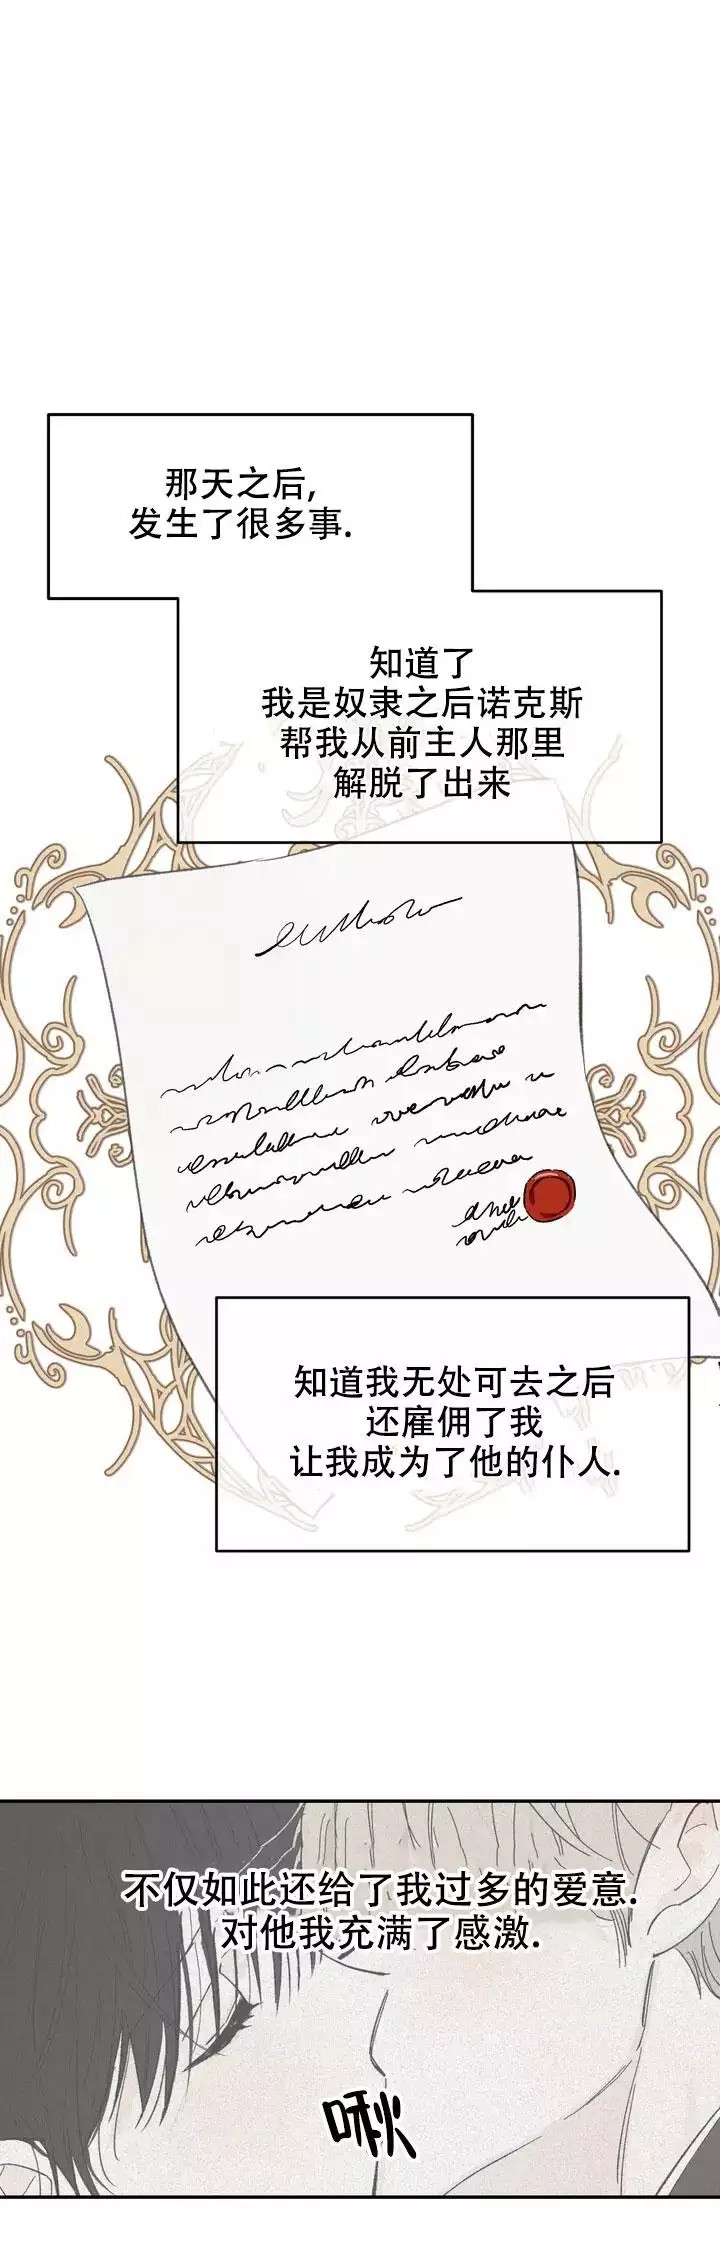 那天之后,
发生了很多事.
知道了
我是奴隶之后诺克斯
帮我从前主人那里
解脱了出来
知道我无处可去之后
还雇佣了我
让我成为了他的仆人.
不仅如此还给了我过多的爱意.
对他我充满了感激.
啾